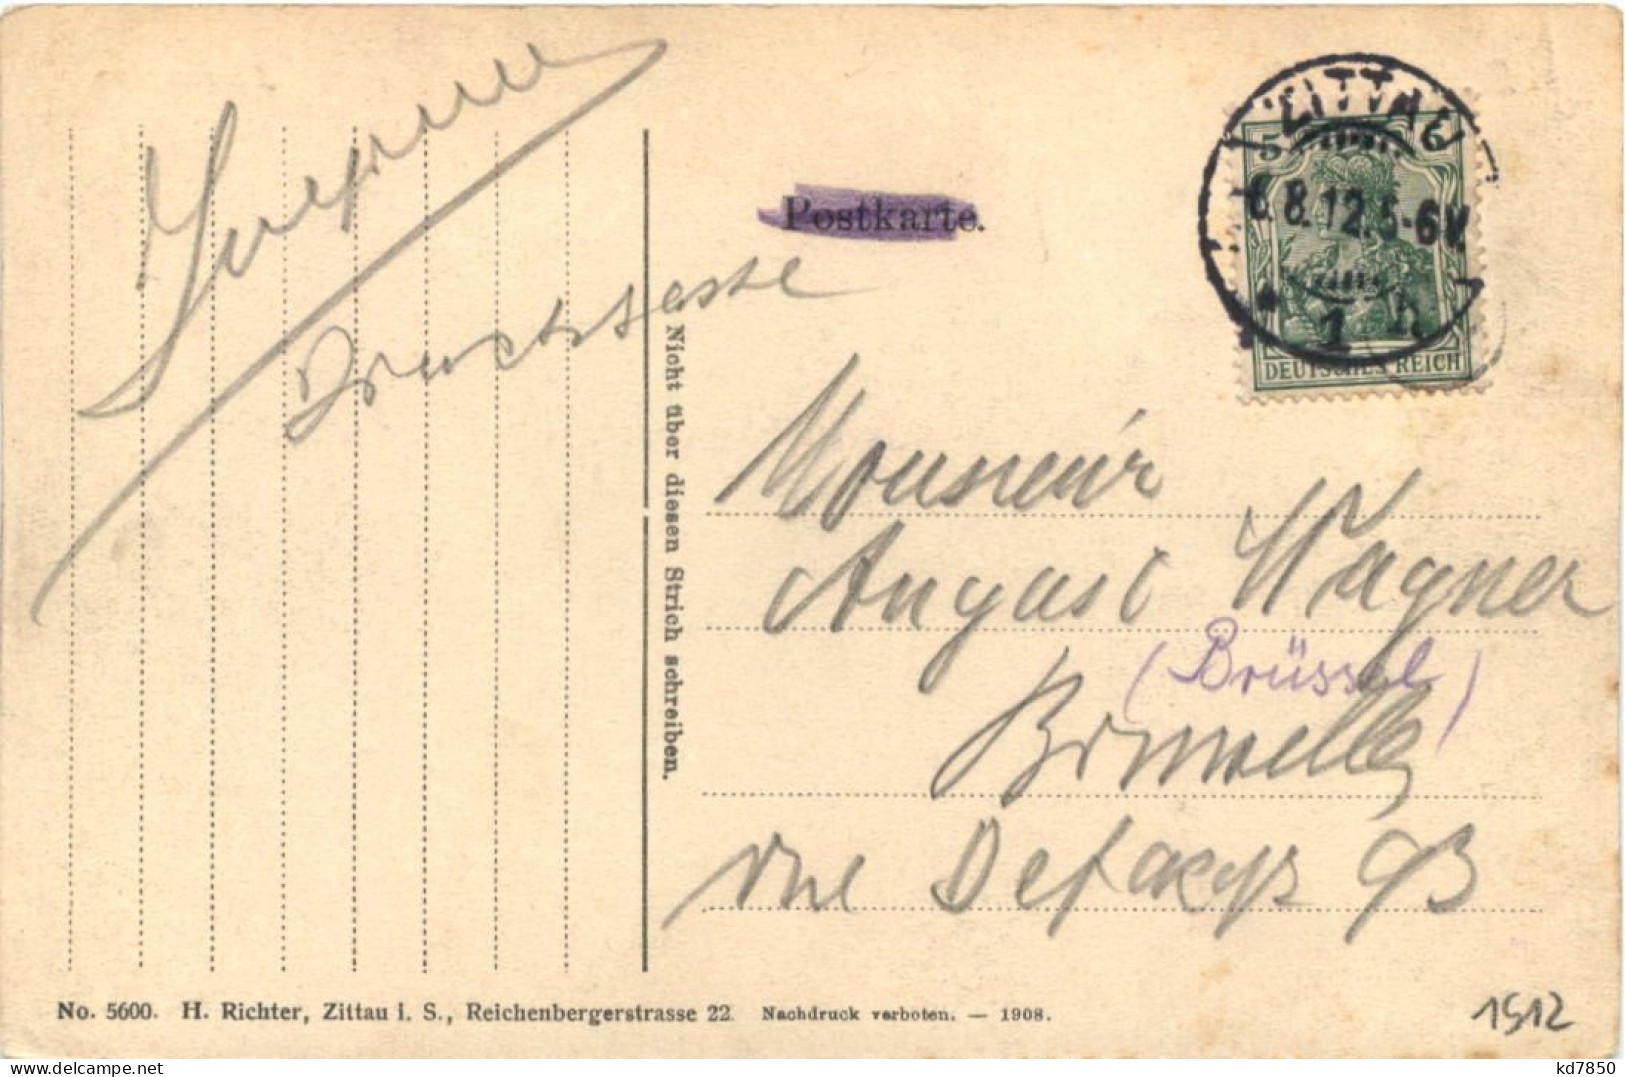 Imprimé
Drucksache
Postkarte.
ZITTAU
6.8.12.5-6V.
* 1 h
5 5
DEUTSCHES REICH
Nicht über diesen Strich schreiben.
Monsieur
August Wagner
(Brüssel)
Bruxelles
rue Defacqz 93
No. 5600. H. Richter, Zittau i. S., Reichenbergerstrasse 22. Nachdruck verboten. — 1908.
1912
kd7850